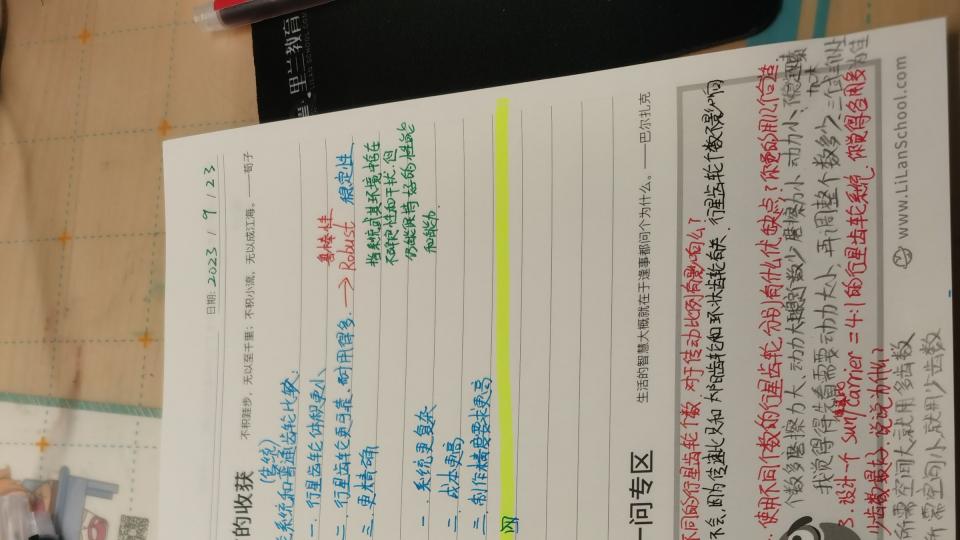 里兰教育
日期: 2023 / 9 / 23
不积跬步，无以至千里；不积小流，无以成江海。 ——荀子
的收获
(传统)
系统和普通齿轮比较.
一. 行星齿轮体积更小
二. 行星齿轮更可靠. 耐用得多. → Robust 稳定性
鲁棒性
指系统或其环境中存在
不确定性如干扰,但
仍能保持好的性能
和能力.
三. 更精确
一. 系统更复杂
二. 成本更高
三. 制作精度要求更高
生活的智慧大概就在于逢事都问个为什么。 ——巴尔扎克
一问专区
不同的行星齿轮个数, 对于传动比例有影响么?
不会,因为传速比只和太阳齿轮和环状齿轮有关. 行星齿轮个数不影响
使用不同个数的行星齿轮,分别有什么优缺点?
个数多磨擦力大、动力大 个数少磨擦力小 动力小、
我觉得得先看需要动力大小 再调整个数多少
3. 设计一个 Sun/Carrier = 4:1的行星齿轮系统.
所需空间大就用多齿数
所需空间小就用少齿数
www.LiLanSchool.com